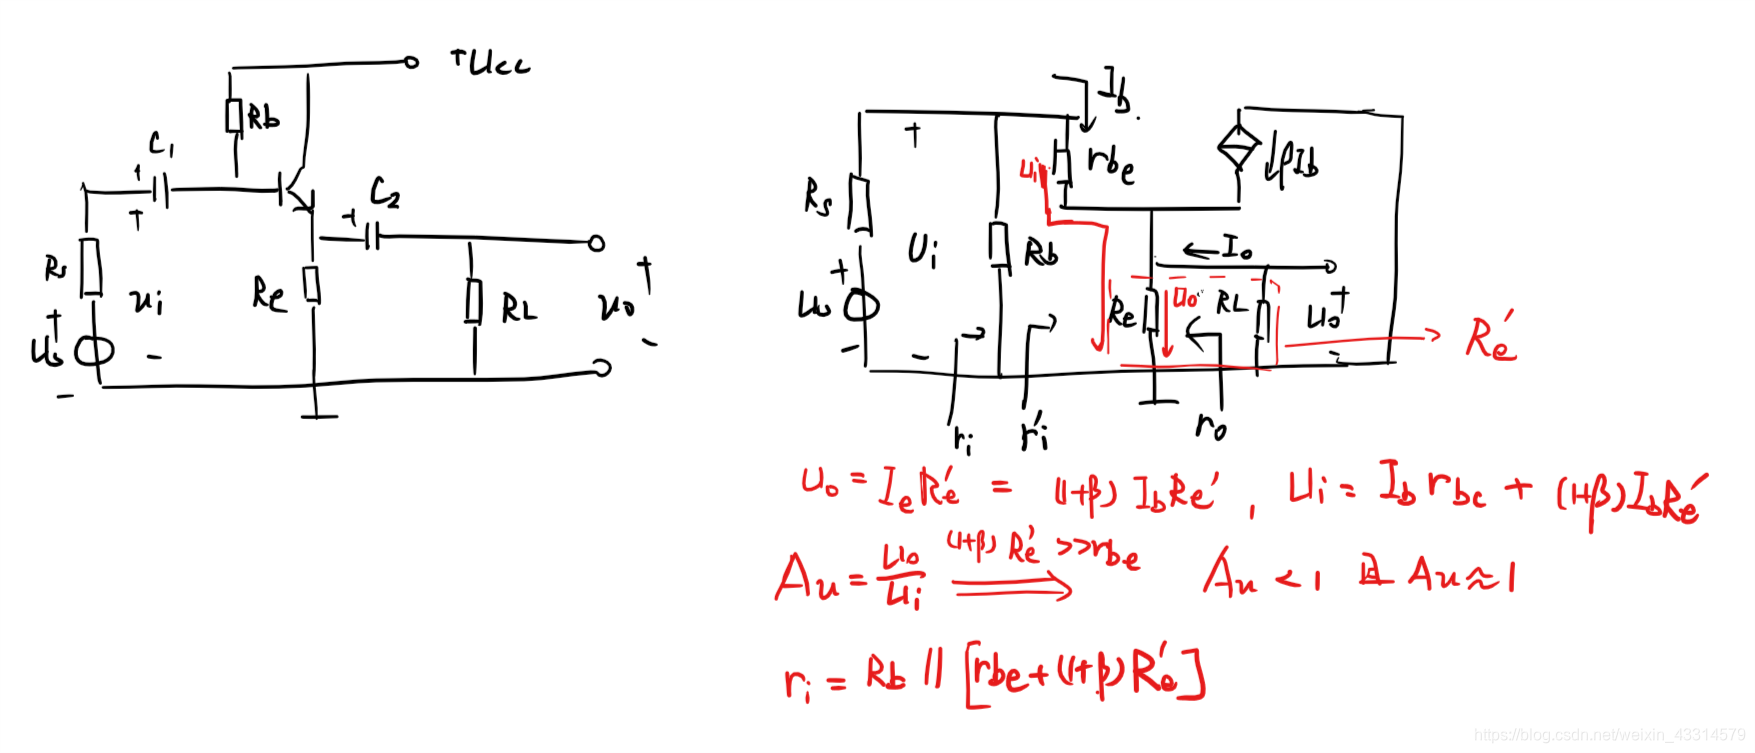 +Ucc
Rb
C₁
+
+
C₂
+
Rs
ui
Re
RL
uo
+
-
+
Us
-
-
Ib
+
rbe
βIb
ui
Rs
Ui
Rb
Io
+
Us
-
-
Re
uo
RL
uo
+
-
Re'
ri
ri'
ro
uo = IeRe' = (1+β) IbRe' , Ui = Ib rbe + (1+β)IbRe'
Au = uo/ui (1+β) Re' >>rbe ⟹ Au < 1 且 Au ≈ 1
ri = Rb // [rbe+(1+β)Re']
https://blog.csdn.net/weixin_43314579